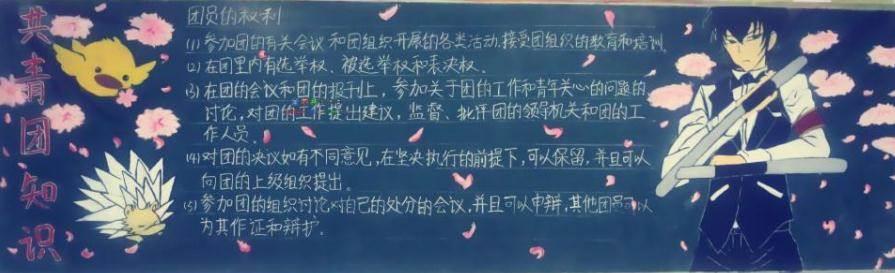 共青团知识
团员的权利
(1)参加团的有关会议和团组织开展的各类活动,接受团组织的教育和培训。
(2)在团里内有选举权、被选举权和表决权。
(3)在团的会议和团的报刊上,参加关于团的工作和青年关心的问题的
讨论,对团的工作提出建议,监督、批评团的领导机关和团的工
作人员。
(4)对团的决议如有不同意见,在坚央执行的前提下,可以保留,并且可以
向团的上级组织提出。
(5)参加团的组织讨论对自己的处分的会议,并且可以申辩,其他团员可以
为其作证和辩护。